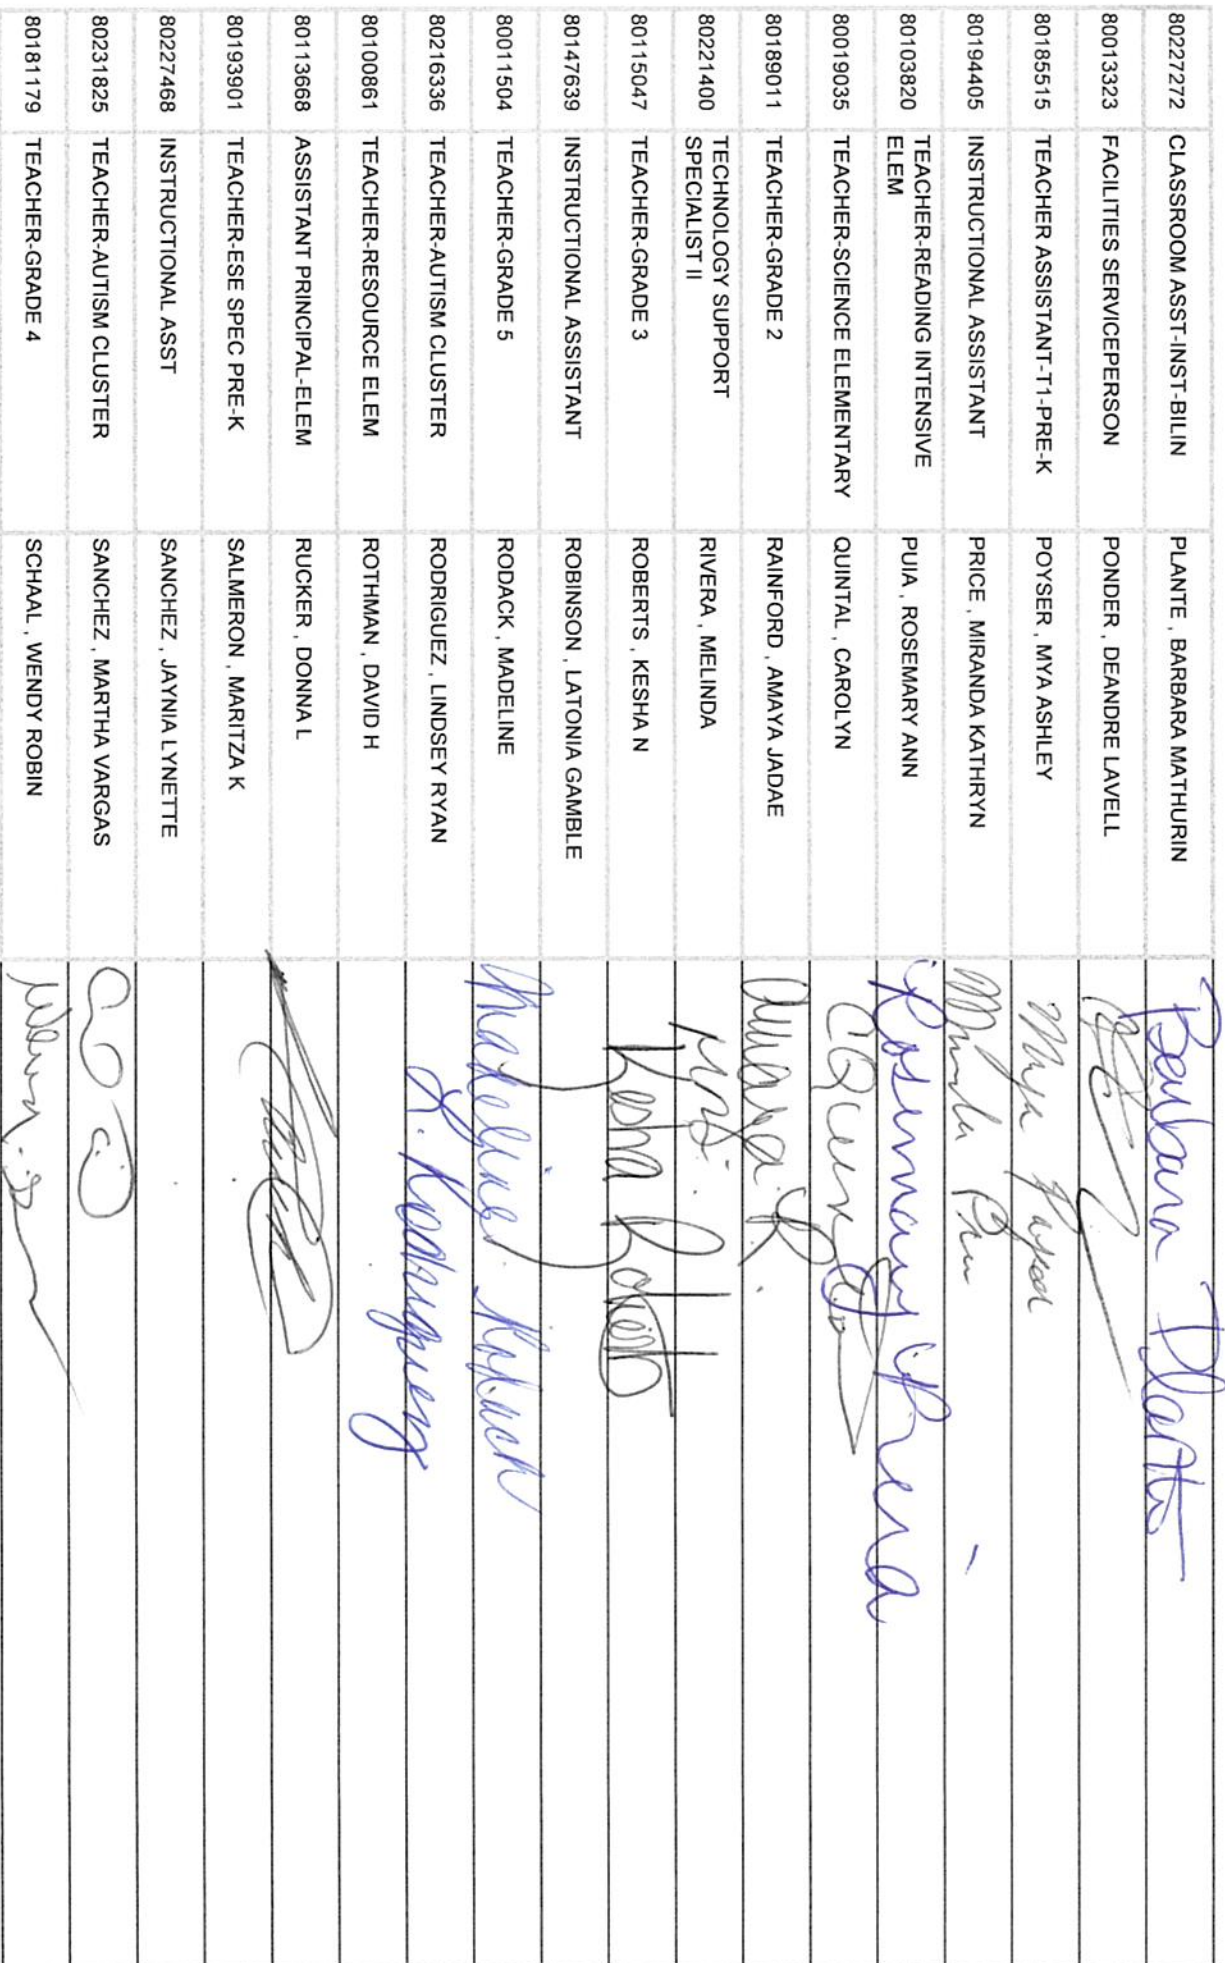 80227272 CLASSROOM ASST-INST-BILIN PLANTE , BARBARA MATHURIN Barbara Plante
80013323 FACILITIES SERVICEPERSON PONDER , DEANDRE LAVELL
80185515 TEACHER ASSISTANT-T1-PRE-K POYSER , MYA ASHLEY Mya Poyser
80194405 INSTRUCTIONAL ASSISTANT PRICE , MIRANDA KATHRYN
80103820 TEACHER-READING INTENSIVE ELEM PUIA , ROSEMARY ANN Rosemary Puia
80019035 TEACHER-SCIENCE ELEMENTARY QUINTAL , CAROLYN
80189011 TEACHER-GRADE 2 RAINFORD , AMAYA JADAE Amaya R.
80221400 TECHNOLOGY SUPPORT SPECIALIST II RIVERA , MELINDA
80115047 TEACHER-GRADE 3 ROBERTS , KESHA N Kesha Roberts
80147639 INSTRUCTIONAL ASSISTANT ROBINSON , LATONIA GAMBLE
80011504 TEACHER-GRADE 5 RODACK , MADELINE Madeline Rodack
80216336 TEACHER-AUTISM CLUSTER RODRIGUEZ , LINDSEY RYAN L. Rodriguez
80100861 TEACHER-RESOURCE ELEM ROTHMAN , DAVID H
80113668 ASSISTANT PRINCIPAL-ELEM RUCKER , DONNA L
80193901 TEACHER-ESE SPEC PRE-K SALMERON , MARITZA K
80227468 INSTRUCTIONAL ASST SANCHEZ , JAYNIA LYNETTE
80231825 TEACHER-AUTISM CLUSTER SANCHEZ , MARTHA VARGAS
80181179 TEACHER-GRADE 4 SCHAAL , WENDY ROBIN